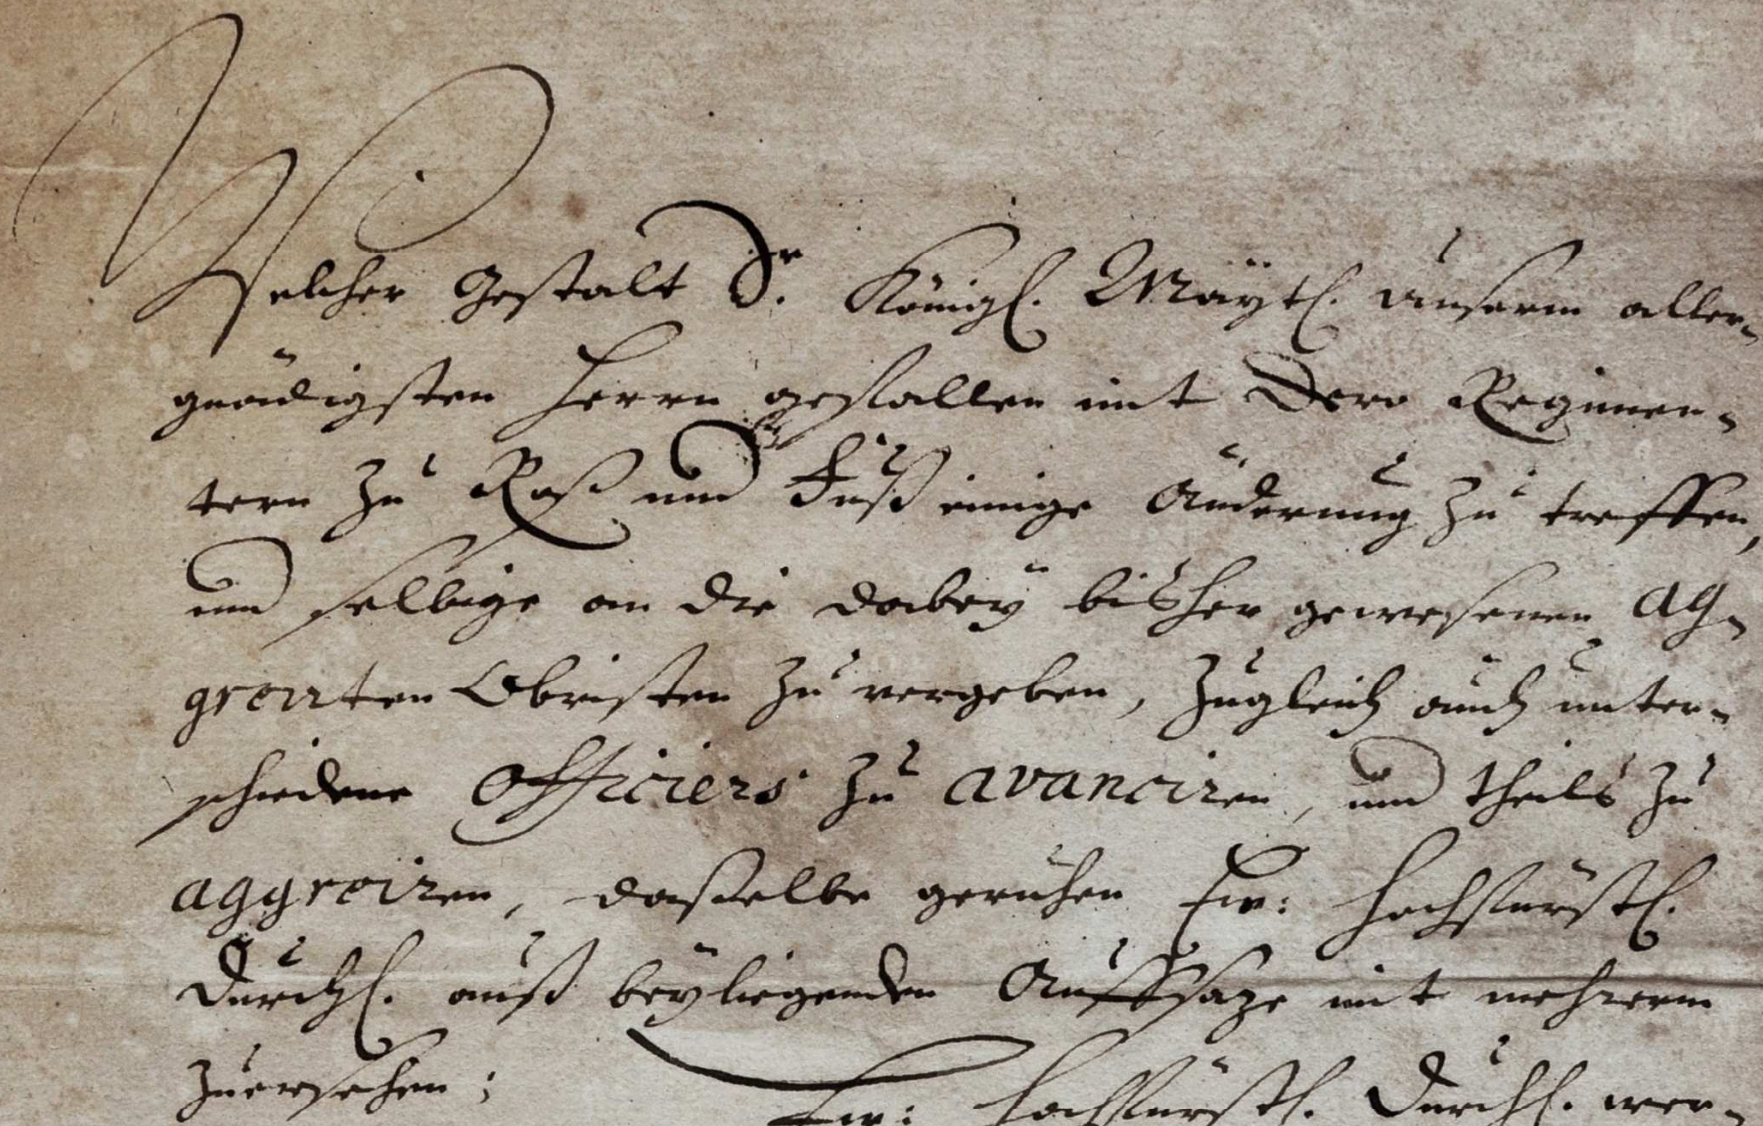 Welcher Gestalt Sr. Königl. Mäytl. unserm aller-
gnädigsten Herrn gefallen mit Dero Regimen-
tern zu Roß und Fuß einige Änderung zu treffen,
und selbige an die dabey bißher gewesenen Ag-
greirten Obristen zu vergeben, zugleich auch unter-
schiedene Officiers zu avanciren, und theils zu
aggreiren, daßelbe geruhen Ew: Hochfürstl.
Durchl. auß beyliegenden Auffsaze mit mehrerm
zuersehen;
Ew: Hochfürstl. Durchl. wer-